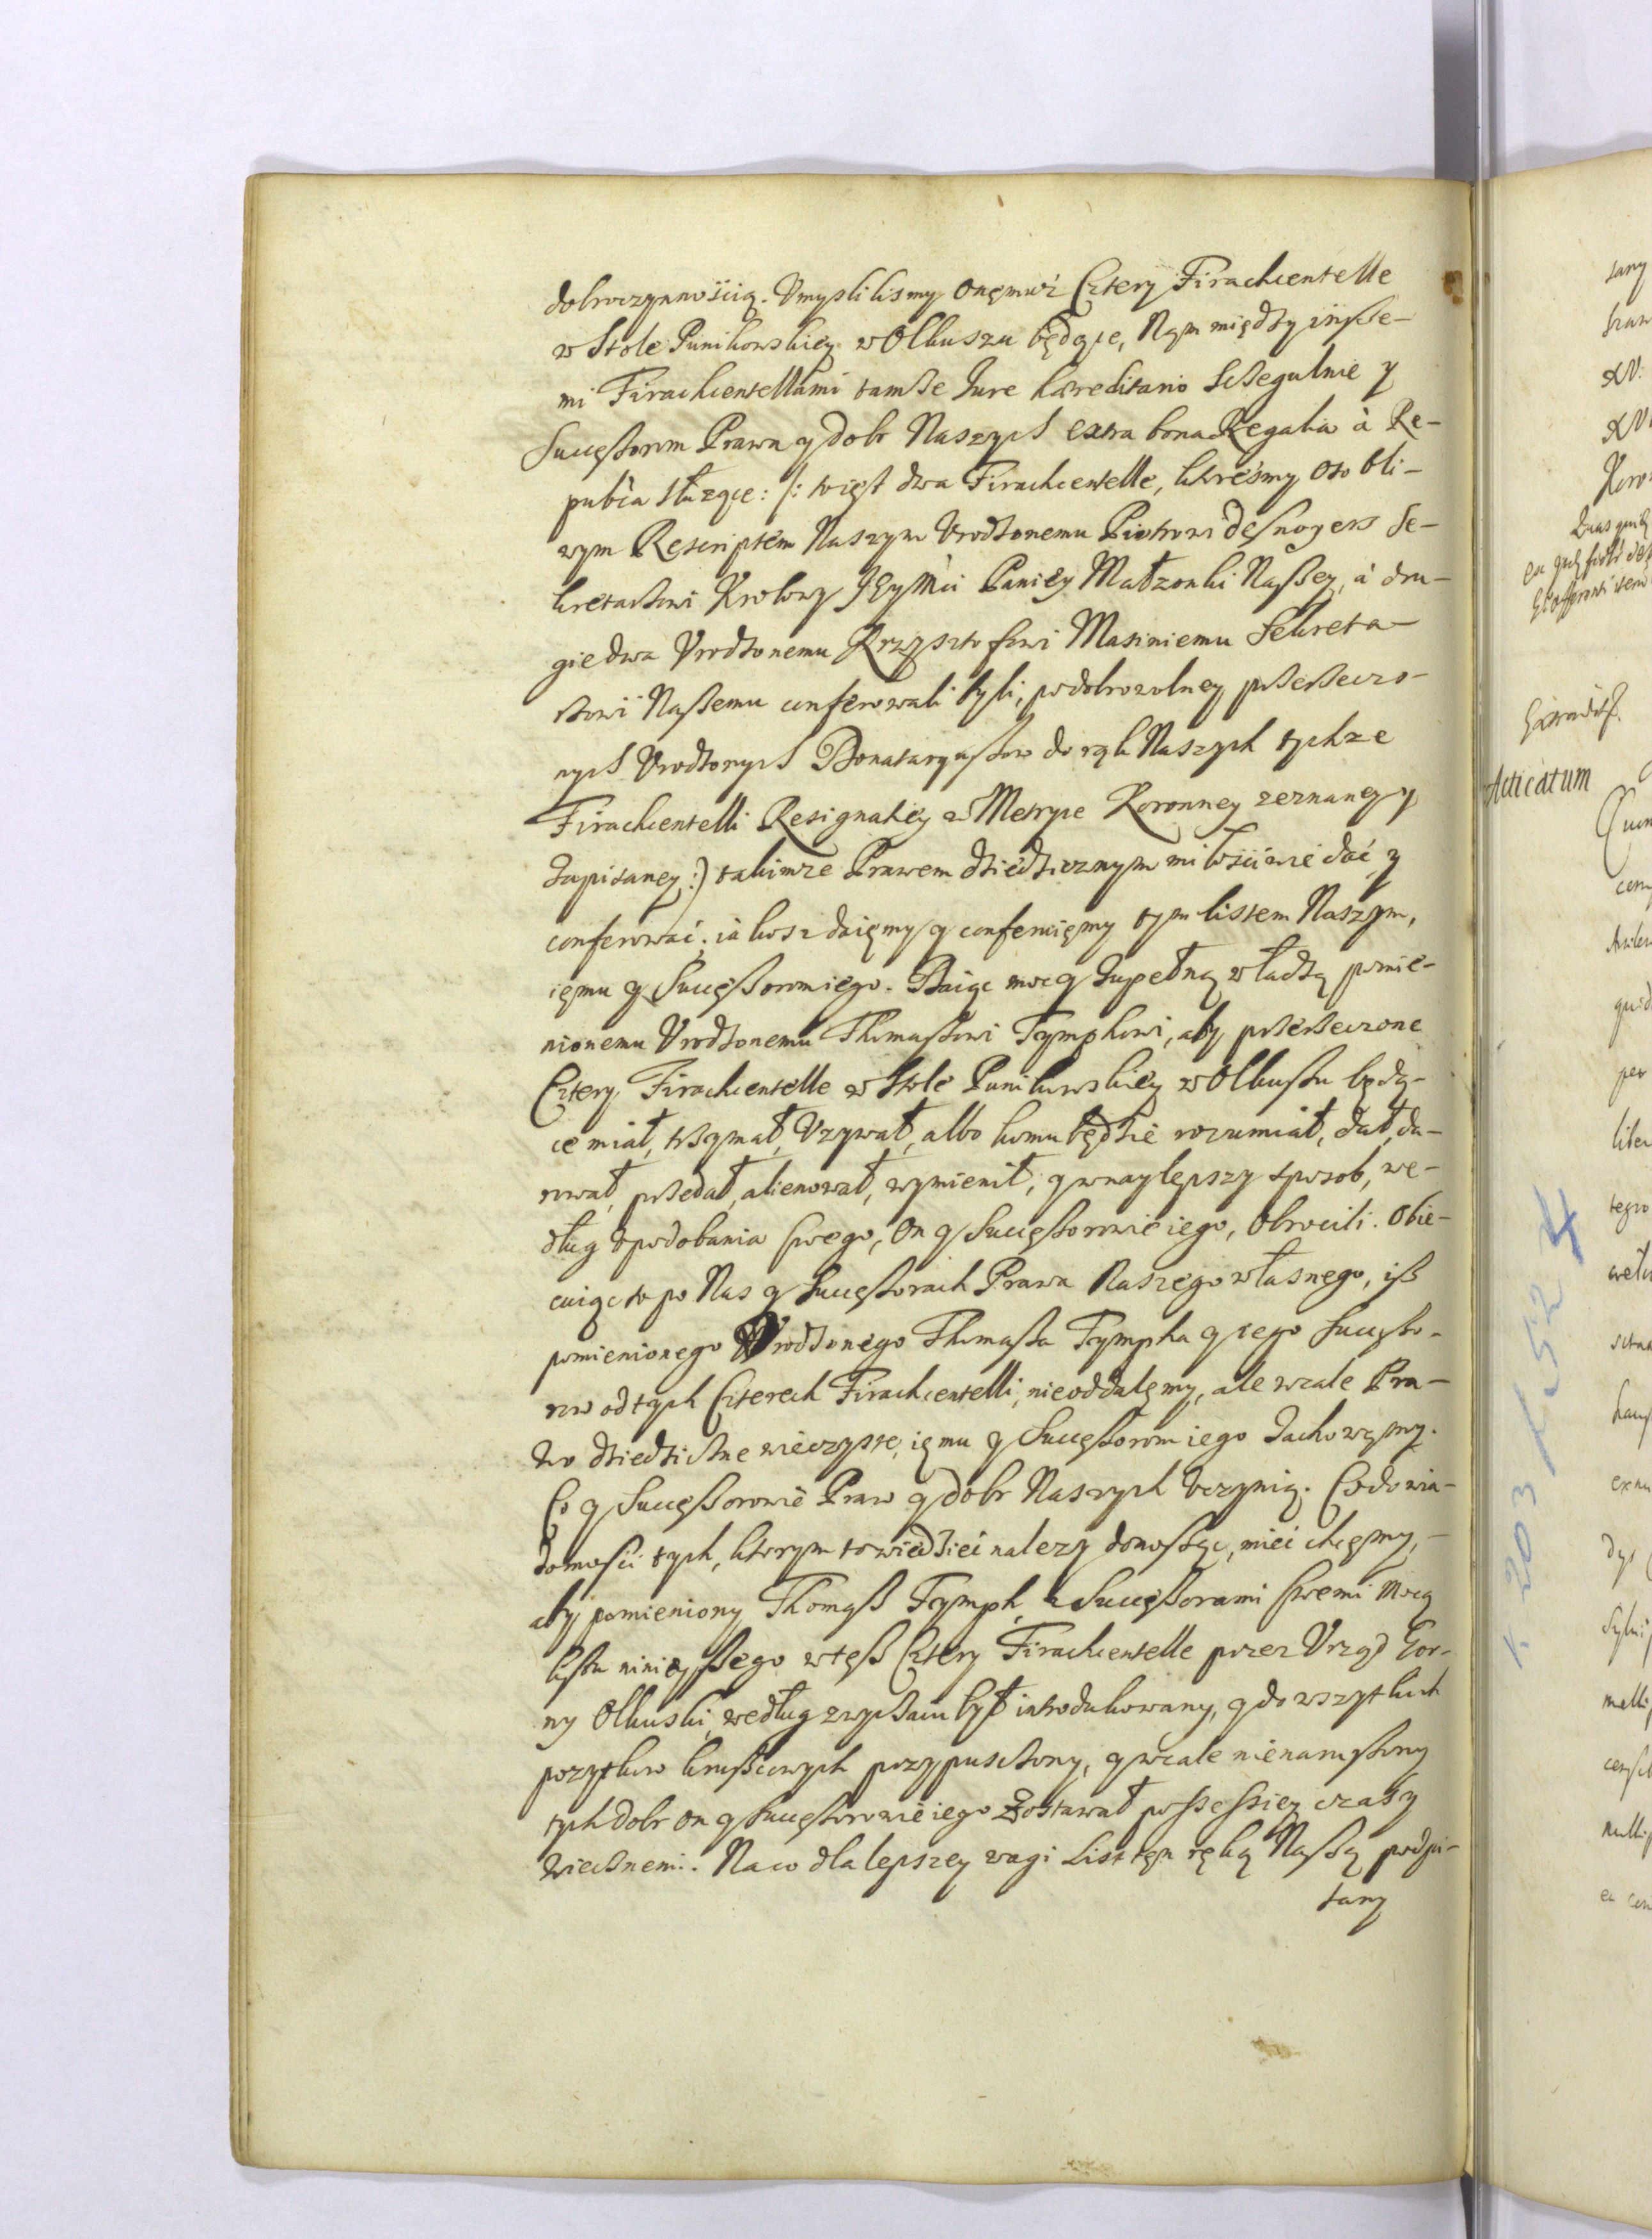 dobroczynnoscią. Vmyslilismy onęmuż Cztery Firachcentelle
w Stole Punikowskiey w Olkuszu będące, Nąm między inße-
mi Firachcentellami tamże Jure hæreditario szczegulnie y
Succęßorom Prawa y dobr Naszych extra bona Regalia à Re-
publca służące: /: to iest dwa Firachcentelle, ktoreśmy osobli-
wym Rescriptem Naszym Vrodzonemu Piotrowi desnoyers Se-
kretarzowi Krolowy JeyMci Paniey Małzonki Naßey, à dru-
gie dwa Vrodzonemu Krzysztofowi Masiniemu Sekreta-
rzowi Naßemu conferowali byli, po dobrowolney przerzeczo-
nych Vrodzonych Donataryußow do rąk Naszych tychze
Firachcentelli Resignatiey w Metryce Koronney zeznaney y
Zapisaney :) takimze Prawem dziedzicznym miłosciwie dać y
conferować; iakosz daięmy y conferuięmy tym listem Naszym,
ięmu y Succęßorom iego. Daiąc moc y Zupełną władzą pomie-
nionemu Vrodzonemu Thomaßowi Tymphowi, aby przerzeczone
Cztery Firachcentelle w Stole Punikowskiey w Olkußu będą-
ce miał, trzymał, Vzywał, albo komu będzie rozumiał, dał, da-
rował, przedał, alienował, wymienił, y w naylepszy sposob, we-
dług Vpodobania swego, on y Succęßorowie iego, obrocili. Obie-
cuiąc to po Nas y Succęßorach Prawa Naszego własnego, iß
pomienionego Vrodzonego Thomaßa Tympha y iego Succęßo-
row od tych Czterech Firachcentelli, nieoddalęmy, ale wcale Pra-
wo dziedziczne wieczyste, ięmu y Succęßorom iego Zachowęmy.
Co y Succęßorowie Praw y dobr Naszych Vczynią. Co do wia-
domosci tych, ktorym to wiedzieć nalezy donoßąc, mieć chcęmy,
aby pomieniony Thomaß Tymph z Succęßorami swemi mocą
listu ninieyßego w teß Cztery Firachcentelle przez Vrząd Gor-
ny Olkuski, według zwyczaiu był introdukowany, y do wszytkich
pozytkow krußcowych przypuszczony, y wcale nienarußony
tych dobr on y Succęßorowie iego Zostawał poßeßiey czasy
wiecznemi. Na co dla lepszey wagi List tęn ręką Naßą podpi-
sany
sany
XV:
Acticatum
per